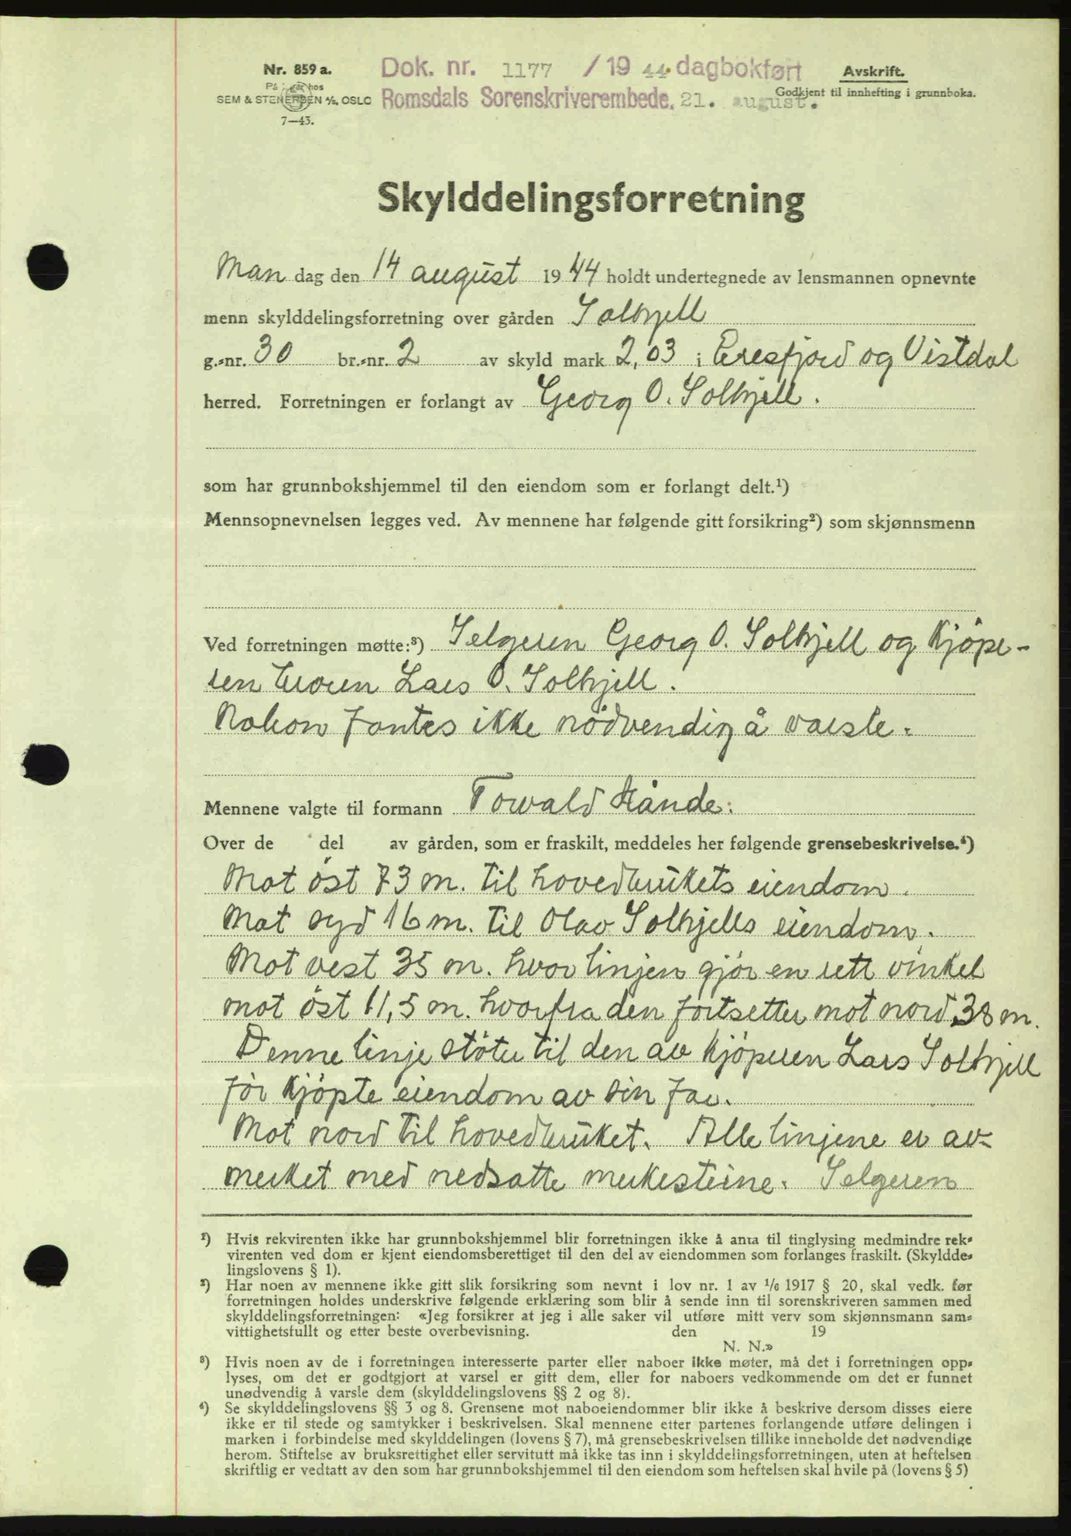 Nr. 859 a.
På lager hos
SEM & STENERSEN A/S, OSLO
7—43.
Dok. nr. 1177 / 19 44 dagbokført
Romsdals Sorenskriverembede. 21. august.
Avskrift.
Godkjent til innhefting i grunnboka.
Skylddelingsforretning
Man dag den 14 august 19 44 holdt undertegnede av lensmannen opnevnte
menn skylddelingsforretning over gården Solhjell
g.-nr. 30 br.-nr. 2 av skyld mark 2,03 i Eresfjord og Vistdal
herred. Forretningen er forlangt av Georg O. Solhjell.
som har grunnbokshjemmel til den eiendom som er forlangt delt.¹)
Mennsopnevnelsen legges ved. Av mennene har følgende gitt forsikring²) som skjønnsmenn
Ved forretningen møtte:³) Selgeren Georg O. Solhjell og kjöpe-
ren Lars O. Solhjell.
Naboen fantes ikke nödvendig å varsle.
Mennene valgte til formann Torvald Hånde.
Over de del av gården, som er fraskilt, meddeles her følgende grensebeskrivelse.⁴)
Mot öst 73 m. til hovedbrukets eiendom.
Mot syd 16 m. til Olav Solhjells eiendom.
Mot vest 35 m. hvor linjen gjör en rett vinkel
mot öst 11,5 m. hvorfra den fortsetter mot nord 38 m.
Denne linje stöter til den av kjöperen Lars Solhjell
för kjöpte eiendom av sin far.
Mot nord til hovedbruket. Alle linjene er av-
merket med nedsatte merkesteine. Selgeren
¹) Hvis rekvirenten ikke har grunnbokshjemmel blir forretningen ikke å anta til tinglysing medmindre rek-
virenten ved dom er kjent eiendomsberettiget til den del av eiendommen som forlanges fraskilt. (Skyldde-
lingslovens § 1).
²) Har noen av mennene ikke gitt slik forsikring som nevnt i lov nr. 1 av 1/6 1917 § 20, skal vedk. før
forretningen holdes underskrive følgende erklæring som blir å sende inn til sorenskriveren sammen med
skylddelingsforretningen: «Jeg forsikrer at jeg i alle saker vil utføre mitt verv som skjønnsmann sam-
vittighetsfullt og etter beste overbevisning. den 19
N. N.»
³) Hvis noen av de i forretningen interesserte parter eller naboer ikke møter, må det i forretningen opp-
lyses, om det er godtgjort at varsel er gitt dem, eller for naboers vedkommende om det er funnet
unødvendig å varsle dem (skylddelingslovens §§ 2 og 8).
⁴) Se skylddelingslovens §§ 3 og 8. Grensene mot naboeiendommer blir ikke å beskrive dersom disses eiere
ikke er til stede og samtykker i beskrivelsen. Skal mennene etter partenes forlangende utføre delingen i
marken i forbindelse med skylddelingen (lovens § 7), må grensebeskrivelsen tillike inneholde det nødvendige
herom. Stiftelse av bruksrettighet eller servitutt må ikke tas inn i skylddelingsforretningen, uten at heftelsen
skriftlig er vedtatt av den som har grunnbokshjemmel til den eiendom som heftelsen skal hvile på (lovens § 5)